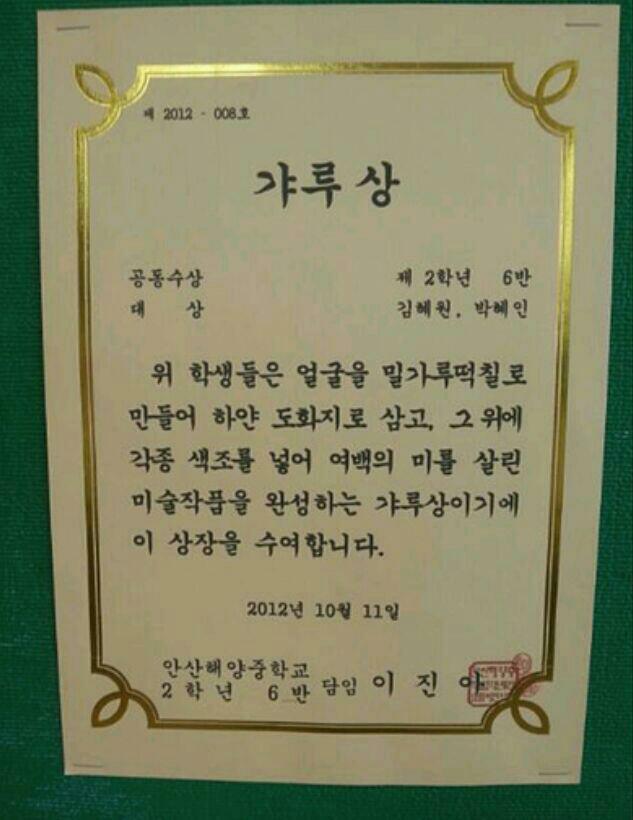 제 2012 - 008호
갸루상
공동수상 제 2학년 6반
대 상 김혜원, 박혜인
위 학생들은 얼굴을 밀가루떡칠로
만들어 하얀 도화지로 삼고, 그 위에
각종 색조를 넣어 여백의 미를 살린
미술작품을 완성하는 갸루상이기에
이 상장을 수여합니다.
2012년 10월 11일
안산해양중학교
2학년 6반 담임 이 진 아